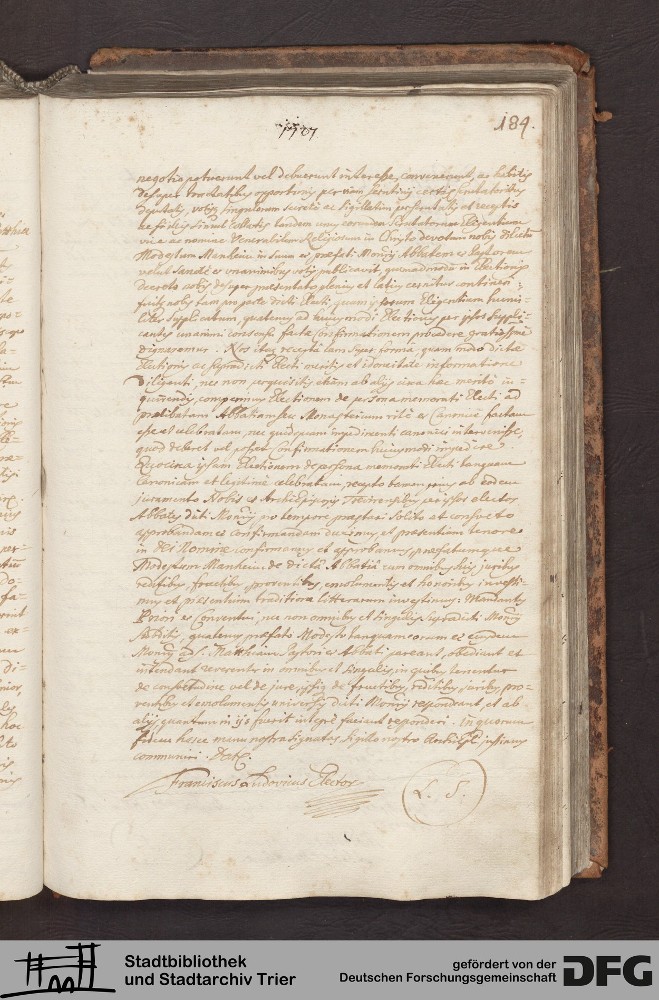 184.
negotio potuerunt vel debuerunt interesse, convenerunt, ac habitis
desuper tractatibus opportunis per viam scrutinii certis scrutatoribus
deputatis, votis singulorum secrete ac sigillatim perscrutatis et receptis
ac fideliter simul collectis tandem unus eorundem scrutatorum eligentium
vice ac nomine Venerabilem Religiosum in Christo devotum nobis dilectum
Modestum Manheim in suum et praefati Monrÿ Abbatem et Pastorem
velut sanctè et unanimibus votis publicavit, quemadmodum in Electionis
decreto nobis desuper praesentato plenius et latius cernitur contineri;
fuitque nobis tam pro parte dicti Electi, quam ipsorum Eligentium humi-
liter supplicatum, quatenus ad huiusmodi Electionis per ipsos suppli-
cantes unanimi consensu factae confirmationem procedere gratiose
dignaremur. Nos itaque recepta tam super forma, quam modo dictae
Electionis ac supradicti Electi meritis et idoneitate informatione
diligenti, nec non perquisitis etiam ab aliis circa hac merito in-
quirendis, comperimus Electionem de persona memorati Electi ad
praelibatam Abbatiam seu Monasterium ritè et Canonicè factam
esse et celebratam, nec quidquam impedimenti canonici intervenisse,
quod deberet vel posset confirmationem huiusmodi impedire
Quocirca ipsam Electionem de persona memorati Electi tanquam
Canonicam et legitimè celebratam, recepto tamen prius ab eodem
juramento Nobis et Archiepiscopis Trevirensibus per ipsos electos
Abbates dicti Monrÿ pro tempore praestari solito et consueto
approbandam et confirmandam duximus et praesentium tenore
in Dei Nomine confirmamus et approbamus, praefatumque
Modestum Manheim de dicta Abbatia cum omnibus suis juribus
reditibus, fructibus, proventibus, emolumentis et honoribus investi-
mus et praesentium traditione litterarum investimus: Mandantes
Priori et Conventui, nec non omnibus et singulis supradicti Monrÿ
subditis, quatenus praefato Modesto tanquam eorum et eiusdem
Monrÿ ad S. Matthiam Pastori et Abbati pareant, obediant et
intendant reverenter in omnibus et singulis, in quibus tenentur
de consuetudine vel de jure, ipsique de fructibus, reditibus, juribus, pro-
ventibus et emolumentis universis dicti Monrÿ respondeant, et ab
aliis quantum in iis fuerit integrè faciant responderi. In quorum
fidem hasce manu nostra signatas sigillo nostro Archiepli jussimus
communiri. Dat.
Franciscus Ludovicus Elector
L. S.
Stadtbibliothek
und Stadtarchiv Trier
gefördert von der
Deutschen Forschungsgemeinschaft
DFG